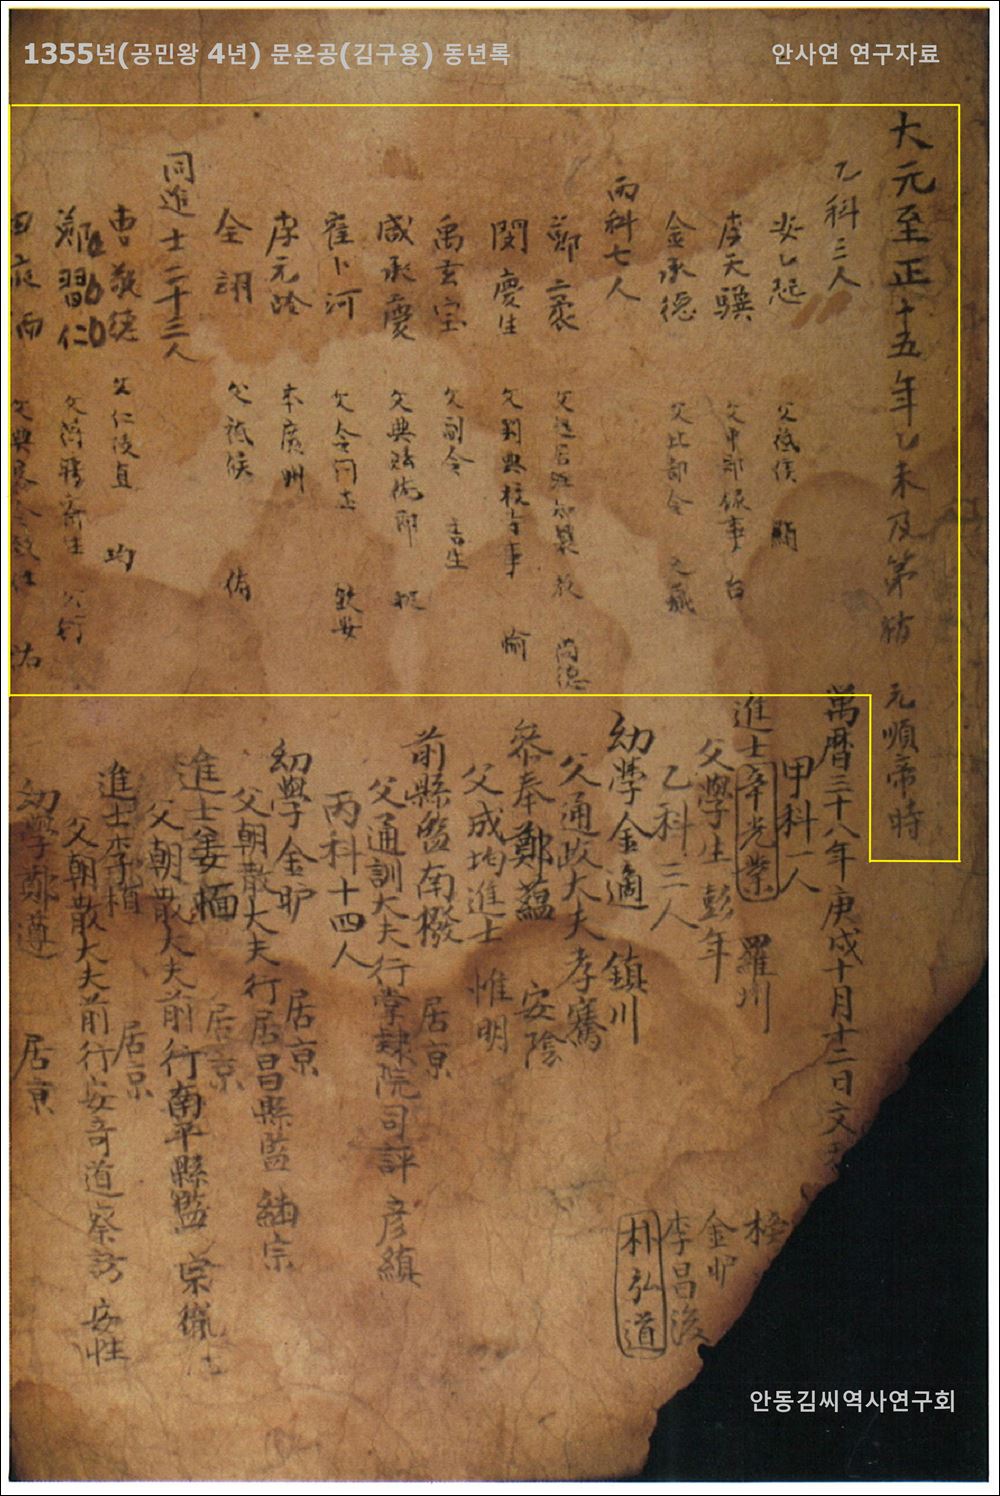 1355년(공민왕 4년) 문온공(김구용) 동년록
안사연 연구자료
大元至正十五年乙未及第榜 元順帝時
乙科三人
安乙起 父祗侯 顯
李天驥 父中部錄事 白
金承德 父比部令 之
丙科七人
鄭
閔慶生 父判典校寺事 愉
禹玄宝 父副令 吉生
咸承慶 父典
崔卜河 父令同正
李元齡 本廣州
全翊 父祗候
同進士二十三人
曹敬德 父仁陵直 均
鄭習仁
萬曆三十八年庚戌十月十二日文
甲科一人
進士辛光業 羅川
父學生彭年
乙科三人
幼學金適 鎭川
父通政大夫孝騫
參奉鄭蘊 安陰
父成均進士 惟明
前縣監南撥 居京
父通訓大夫行掌隷院司評 彦縝
丙科十四人
幼學金昈 居京
父朝散大夫行居昌縣監 紬宗
進士姜愐 居京
父朝散大夫前行南平縣監 宗胤
進士李植 居京
父朝散大夫前行安奇道察訪 安性
幼學鄭遵 居京
榜
金昈
李昌後
朴弘道
안동김씨역사연구회